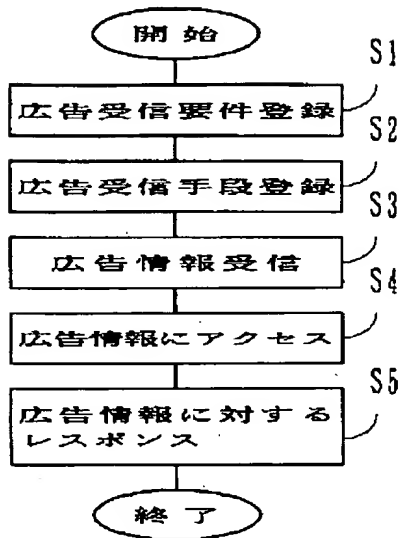 開始
S1
広告受信要件登録
S2
広告受信手段登録
S3
広告情報受信
S4
広告情報にアクセス
S5
広告情報に対する
レスポンス
終了